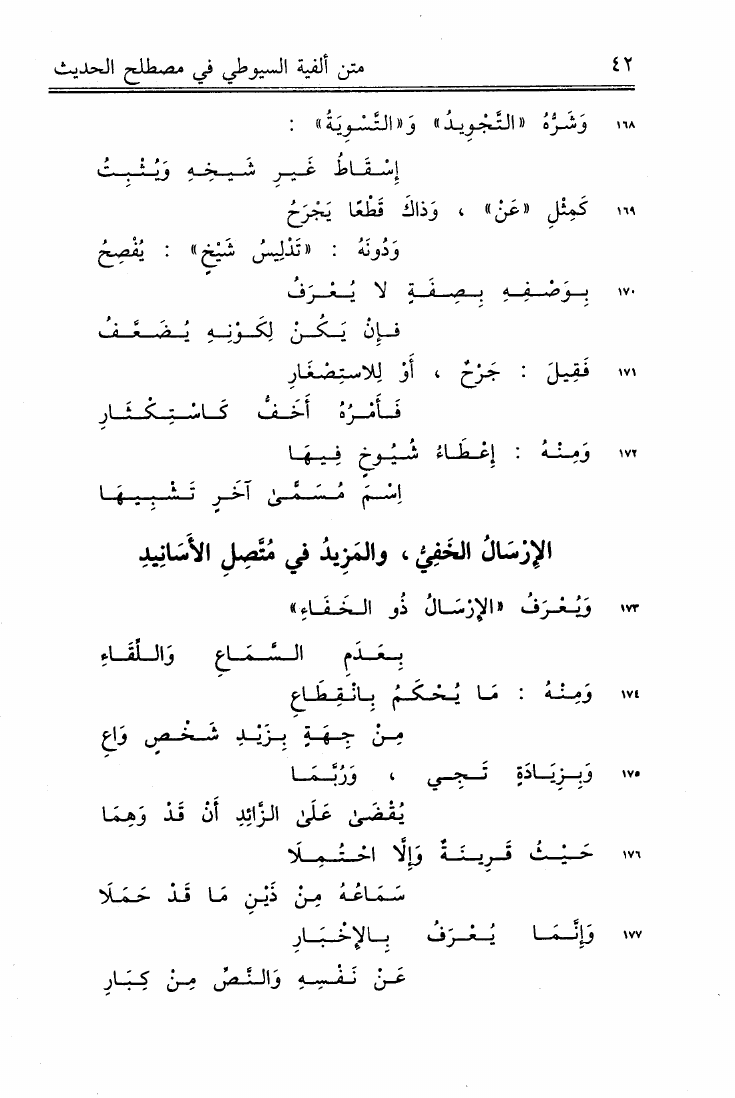 ٤٢ متن ألفية السيوطي في مصطلح الحديث
١٦٨ وَشَرُّهُ «التَّجْوِيدُ» وَ«التَّسْوِيَةُ» :
إِسْقَاطُ غَيرِ شَيخِهِ وَيُثْبِتُ
١٦٩ كَمِثْلِ «عَنْ» ، وَذَاكَ قَطْعًا يَجْرَحُ
وَدُونَهُ : «تَدْلِيسُ شَيْخٍ» : يُفْصِحُ
١٧٠ بِوَصْفِهِ بِصِفَةٍ لَا يُعْرَفُ
فَإِنْ يَكُنْ لِكَوْنِهِ يُضَعَّفُ
١٧١ فَقِيلَ : جَرْحٌ ، أَوْ لِلاسْتِصْغَارِ
فَأَمْرُهُ أَخَفُّ كَاسْتِكْثَارِ
١٧٢ وَمِنْهُ : إِعْطَاءُ شُيُوخٍ فِيهَا
اِسْمَ مُسَمَّىً آخَرٍ تَشْبِيهَا
الإِرْسَالُ الخَفِيُّ ، والمَزِيدُ في مُتَّصِلِ الأَسَانِيدِ
١٧٣ وَيُعْرَفُ «الإِرْسَالُ ذُو الخَفَاءِ»
بِعَدَمِ السَّمَاعِ وَاللِّقَاءِ
١٧٤ وَمِنْهُ : مَا يُحْكَمُ بِانْقِطَاعِ
مِنْ جِهَةٍ بِزَيْدِ شَخْصٍ وَاعِ
١٧٥ وَبِزِيَادَةٍ تَجِي ، وَرُبَّمَا
يُقْضَىٰ عَلَىٰ الزَّائِدِ أَنْ قَدْ وَهِمَا
١٧٦ حَيْثُ قَرِينَةٌ وَإِلَّا احْتُمِلَا
سَمَاعُهُ مِنْ ذَيْنِ مَا قَدْ حَمَلَا
١٧٧ وَإِنَّمَا يُعْرَفُ بِالإِخْبَارِ
عَنْ نَفْسِهِ وَالنَّصِّ مِنْ كِبَارِ